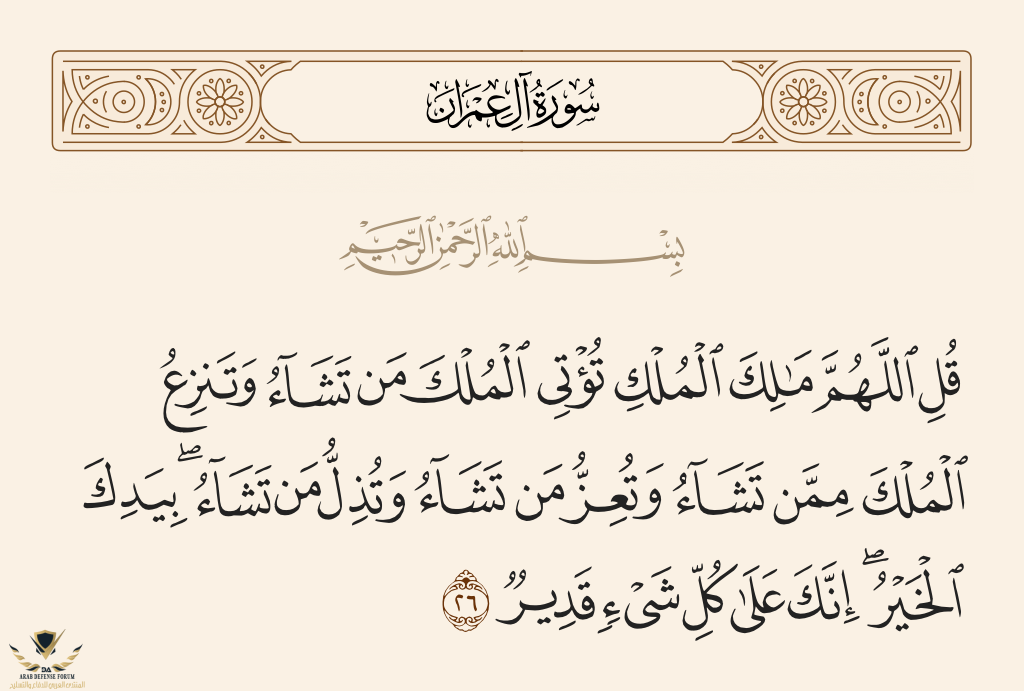 سُورَةُ آلِ عِمْرَانَ
بِسْمِ ٱللَّهِ ٱلرَّحْمَٰنِ ٱلرَّحِيمِ
قُلِ ٱللَّهُمَّ مَٰلِكَ ٱلْمُلْكِ تُؤْتِى ٱلْمُلْكَ مَن تَشَآءُ وَتَنزِعُ
ٱلْمُلْكَ مِمَّن تَشَآءُ وَتُعِزُّ مَن تَشَآءُ وَتُذِلُّ مَن تَشَآءُ ۖ بِيَدِكَ
ٱلْخَيْرُ ۖ إِنَّكَ عَلَىٰ كُلِّ شَىْءٍ قَدِيرٌ ٢٦
DA
ARAB DEFENSE FORUM
المنتدى العربي للدفاع والتسليح